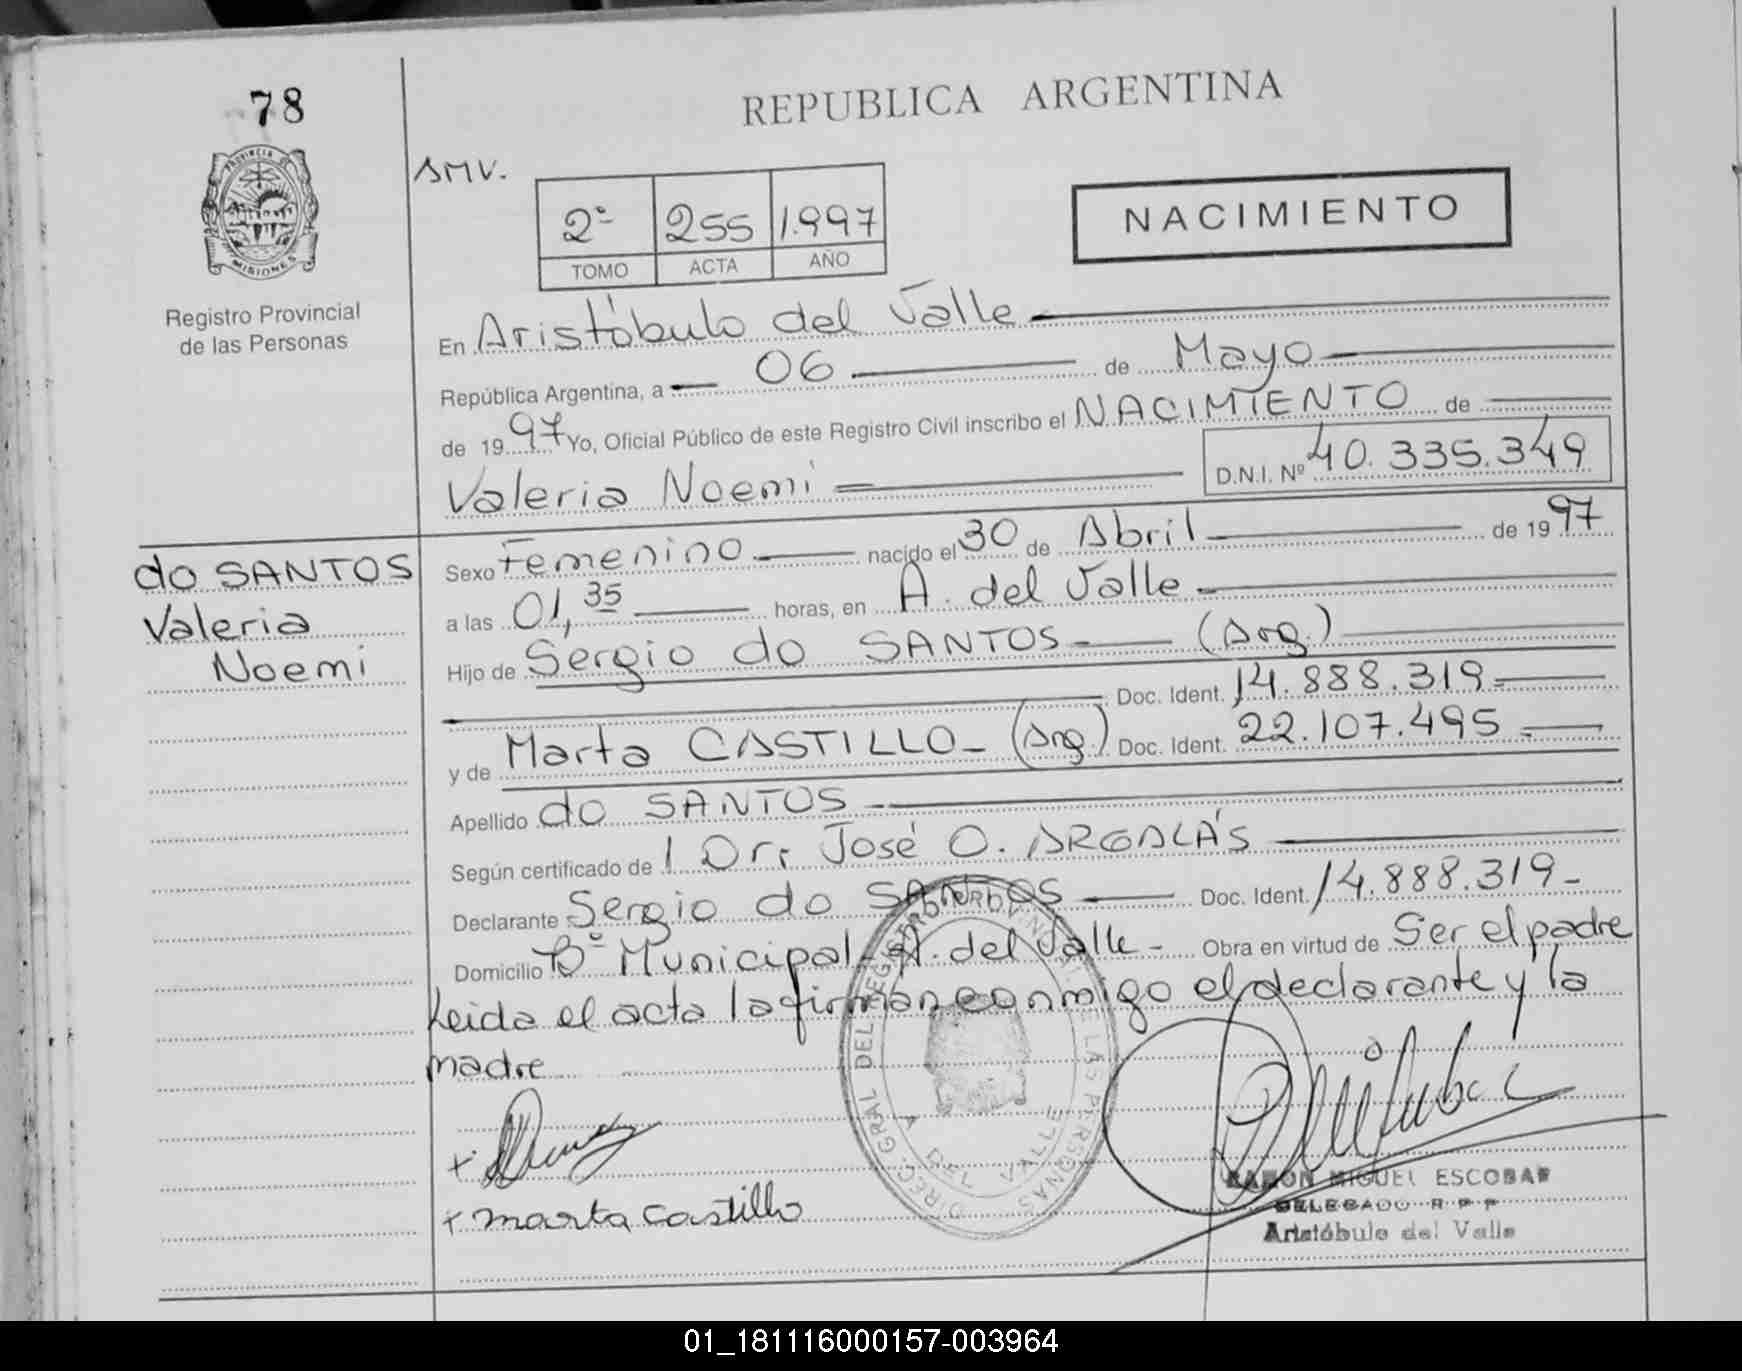 78
REPUBLICA ARGENTINA
PROVINCIA DE
MISIONES
Registro Provincial
de las Personas
SMV.
2º 255 1.997
TOMO ACTA AÑO
NACIMIENTO
En Aristóbulo del Valle
República Argentina, a 06 de Mayo
de 1997 Yo, Oficial Público de este Registro Civil inscribo el NACIMIENTO de
Valeria Noemi D.N.I. Nº 40.335.349
do SANTOS
Valeria
Noemi
Sexo Femenino nacido el 30 de Abril de 1997
a las 01,35 horas, en A. del Valle
Hijo de Sergio do SANTOS (Arg.)
Doc. Ident. 14.888.319
y de Marta CASTILLO (Arg.) Doc. Ident. 22.107.495
Apellido do SANTOS
Según certificado de 1 Dr: José O. ARGALÁS
Declarante Sergio do SANTOS Doc. Ident. 14.888.319
Domicilio Bº Municipal - A. del Valle - Obra en virtud de Ser el padre
Leida el acta la firman conmigo el declarante y la
madre
+ marta castillo
RAMON MIGUEL ESCOBAR
DELEGADO R P P
Aristóbulo del Valle
01_181116000157-003964